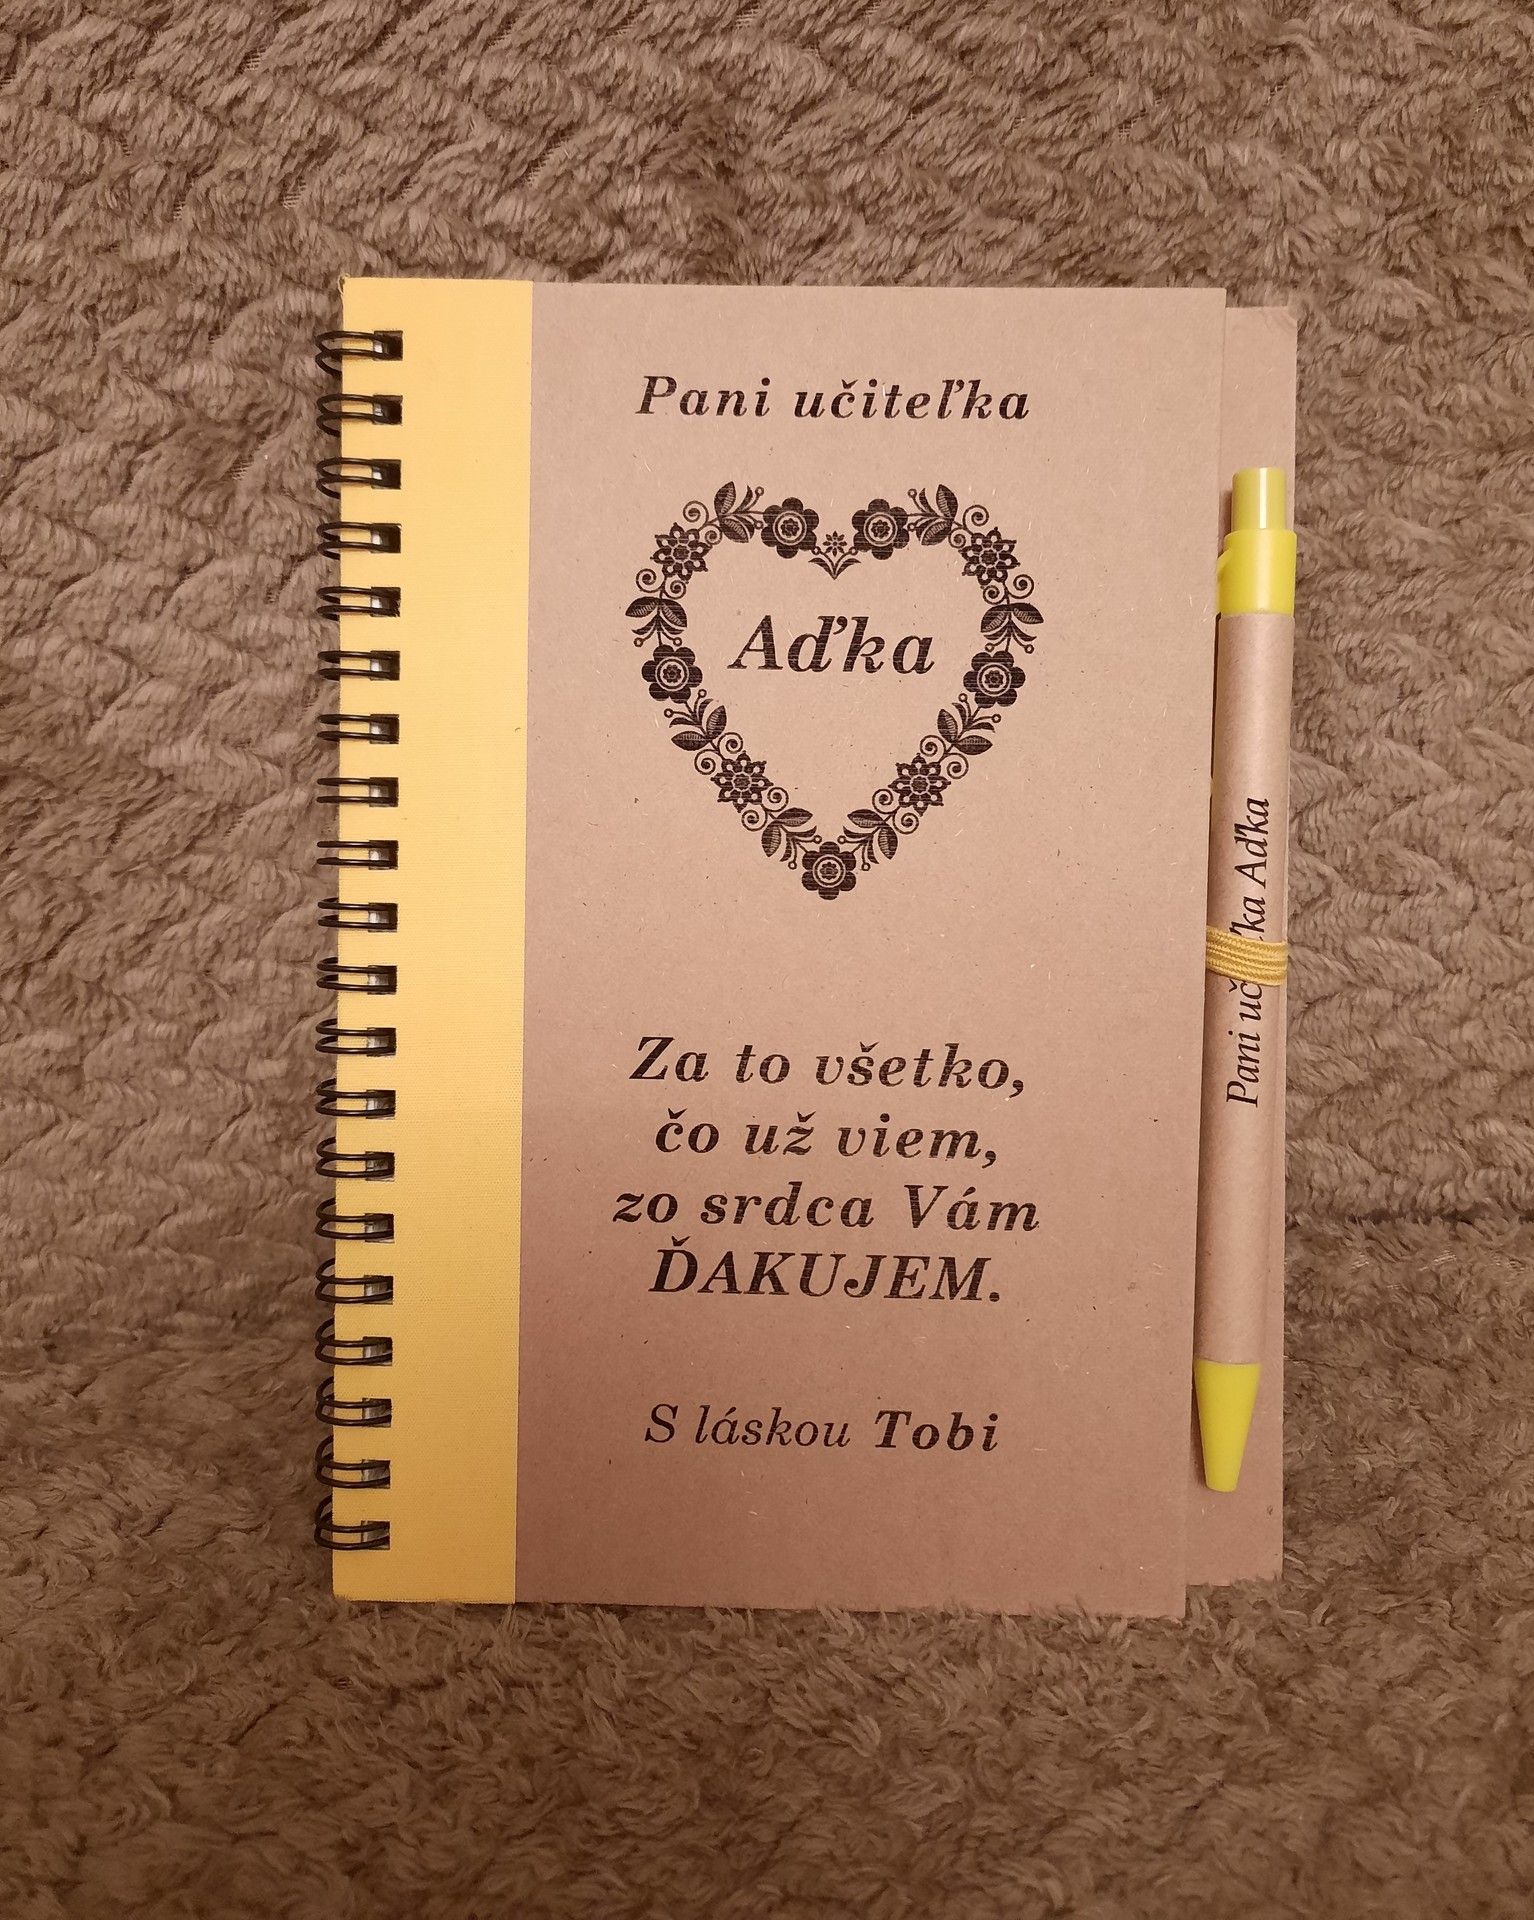 Pani učiteľka
Aďka
Za to všetko,
čo už viem,
zo srdca Vám
ĎAKUJEM.
S láskou Tobi
Pani uč ľka Aďka